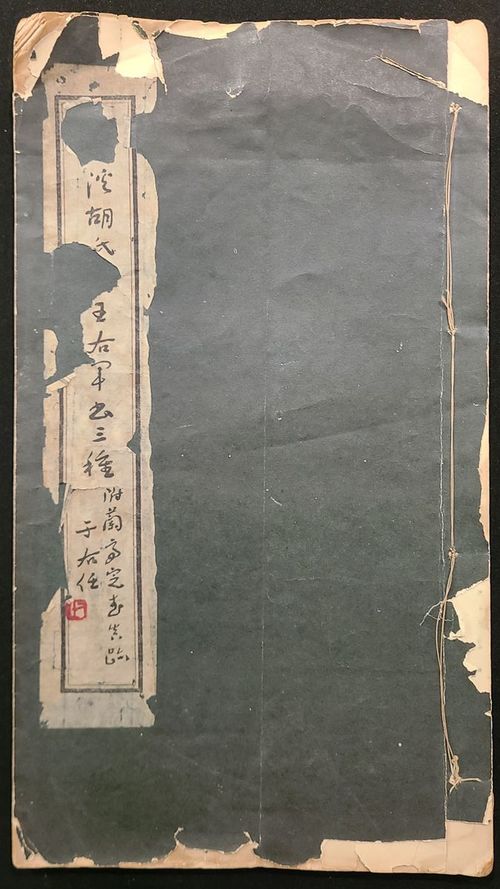 溪胡氏 王右軍書三種
附蘭亭定武真跡
于右任